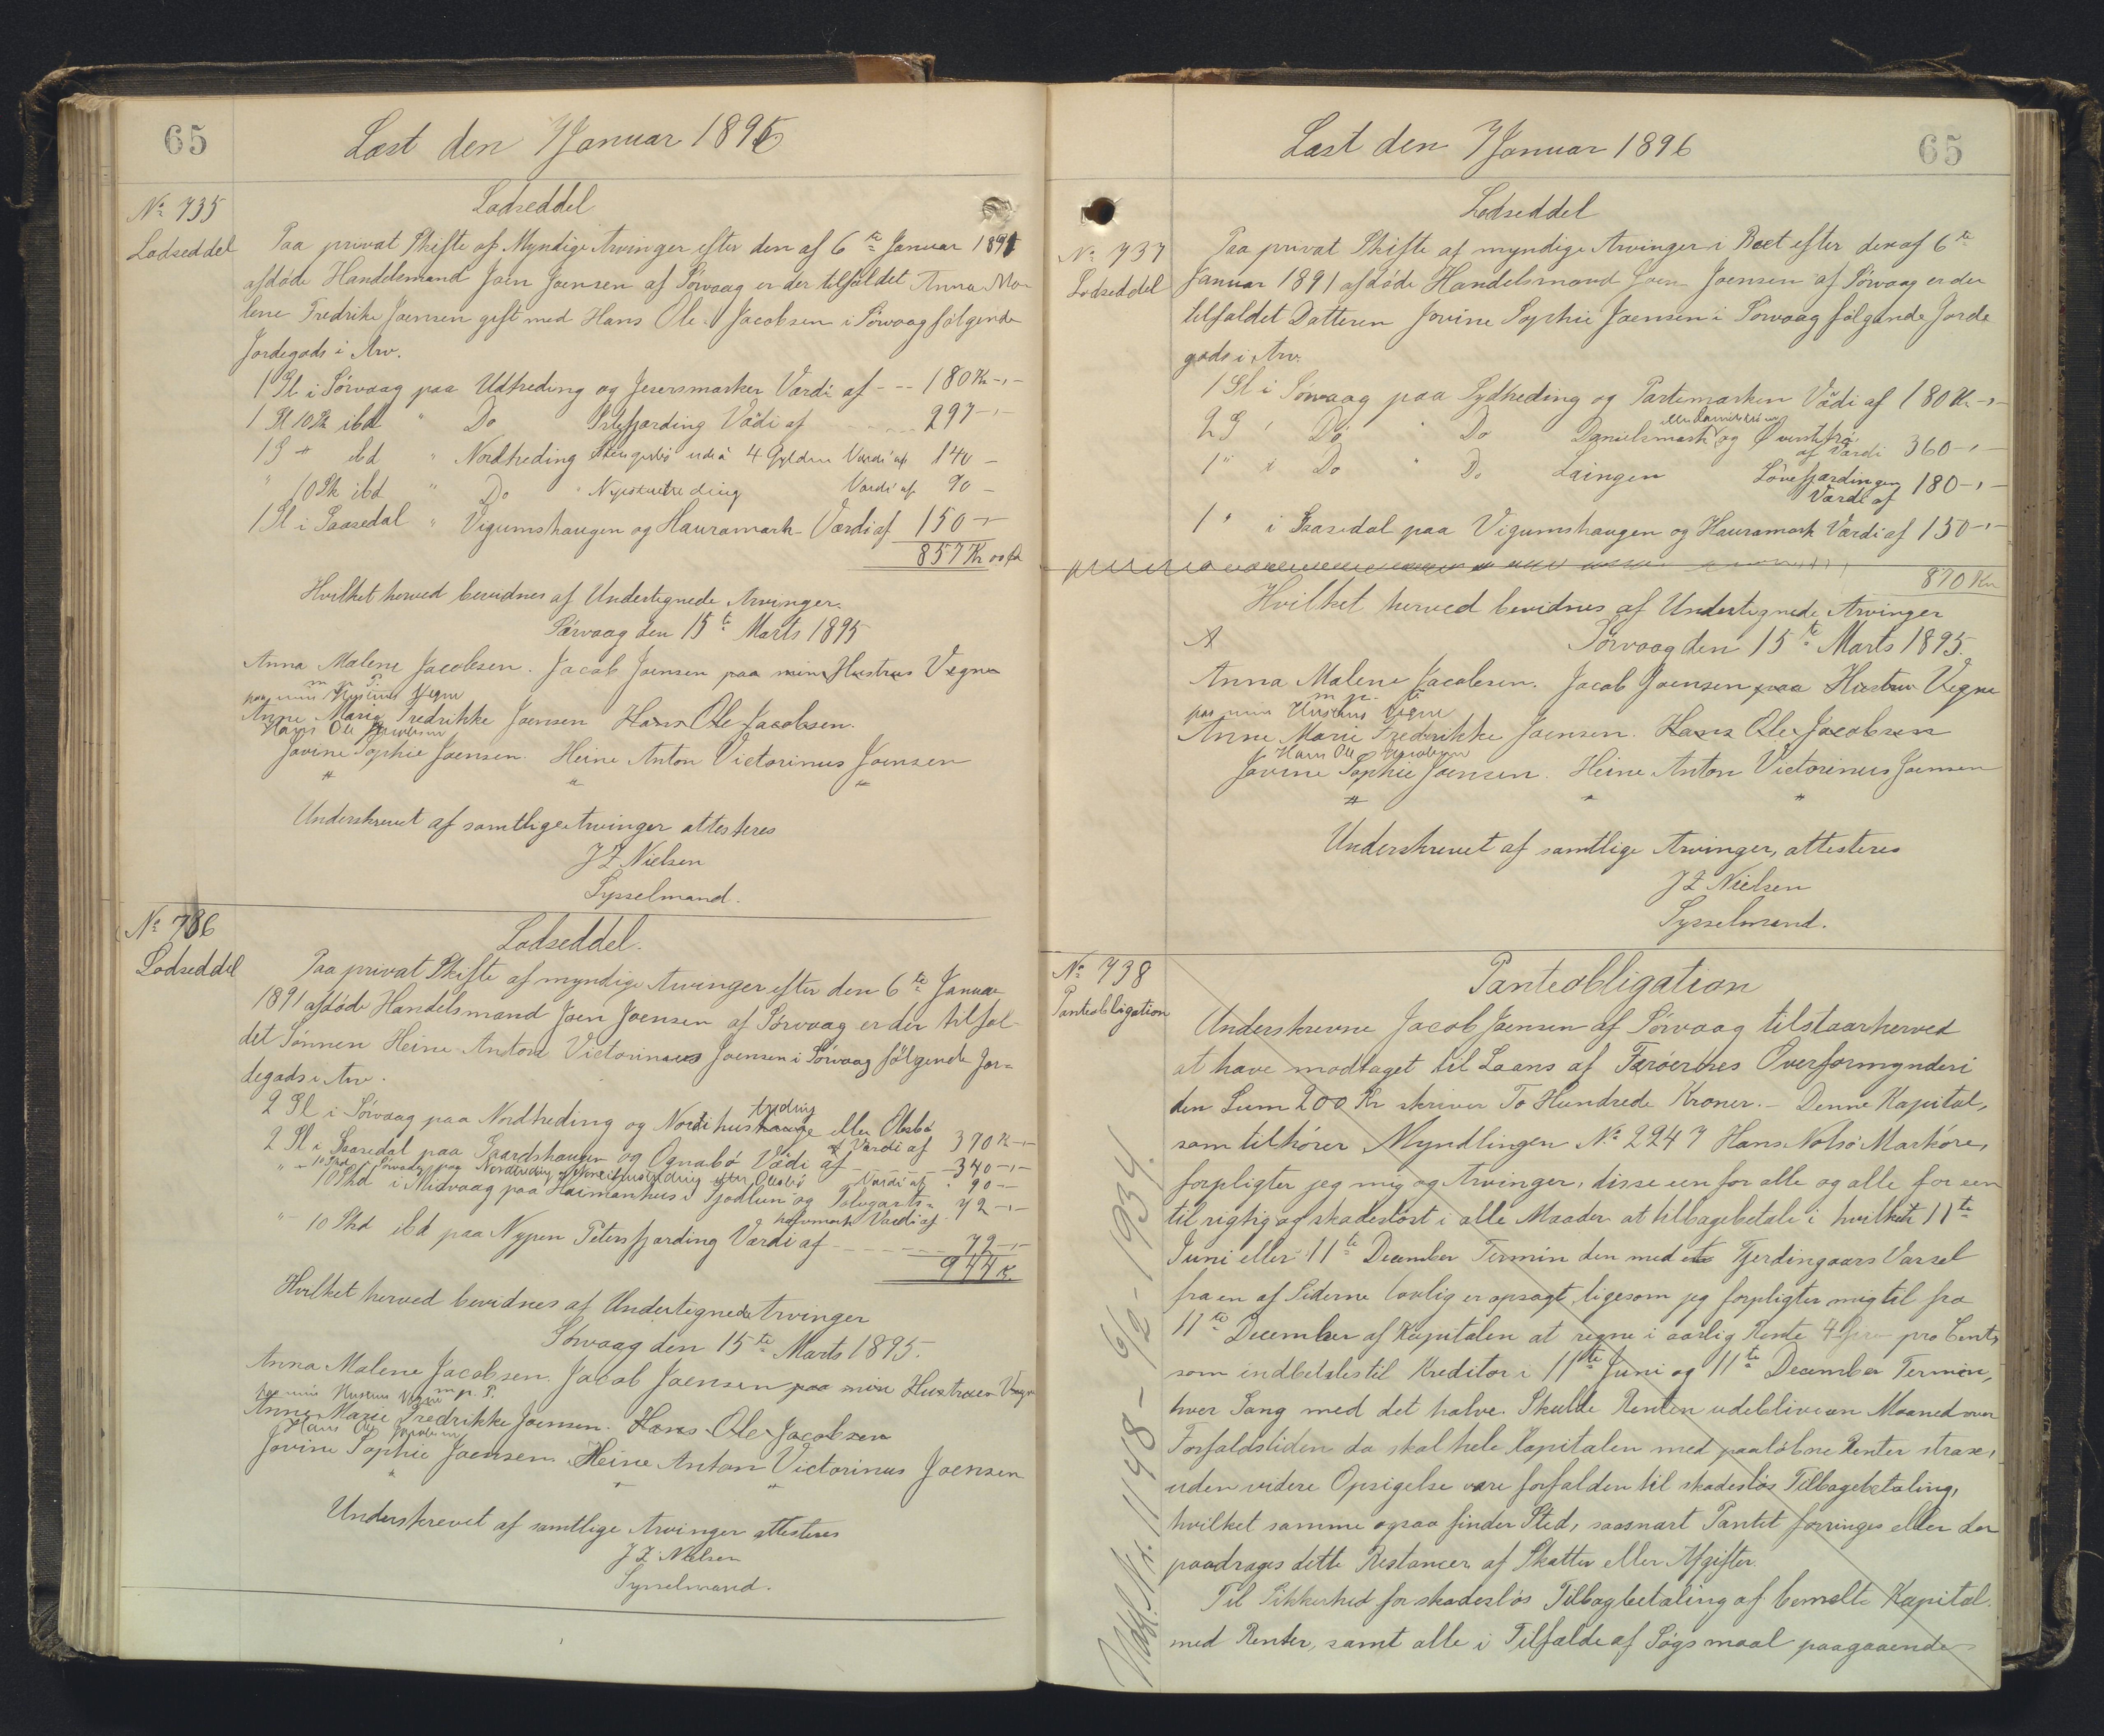 65
Læst den 7 Januar 1896
No 735
Lodseddel
Lodseddel
Paa privat Skifte af Myndige Arvinger efter den af 6te Januar 1891
afdøde Handelsmand Joen Joensen af Sørvaag er der tilfaldet Anna Ma-
lene Fredrike Joensen gift med Hans Ole Jacobsen i Sørvaag følgende
Jordegods i Arv.
1 Gl i Sørvaag paa Udtreding og Jesersmarker Værdi af - - - 180 Kr -,-
1 Gl 10 Sk ibd " Do Pætefjærding Vædi af - - - 297 -,-
1 G " ibd " Nordtreding Stengerbö udi á 4 Gylden Værdi af 140 -
" 10 Sk ibd " Do " Nysturtreding Værdi af 90 -
1 Gl i Saasedal " Vigumshaugen og Hauramark Værdi af 150 -,-
857 Kr 00 ø
Hvilket herved bevidnes af Undertegnede Arvinger.
Sørvaag den 15te Marts 1895
Anna Malene Jacobsen. Jacob Joensen paa min Hustrus Vegne
m p P.
paa min Hustrus Vegne
Anne Marie Fredrikke Joensen Hans Ole Jacobsen.
Hans Ole Jacobsen
Jovine Sophie Joensen. Heine Anton Victorinus Joensen
" " "
Underskrevet af samtlige Arvinger attesteres
J Z Nielsen
Sysselmand.
No 736
Lodseddel
Lodseddel.
Paa privat Skifte af myndige Arvinger efter den 6te Januar
1891 afdøde Handelsmand Joen Joensen af Sørvaag er der tilfal-
det Sønnen Heine Anton Victorinus Joensen i Sørvaag følgende Jor=
degods i Arv.
treding
2 Gl i Sørvaag paa Nordtreding og Nordihushauge eller Olesbø
af Værdi af 370 Kr -,-
2 Gl i Saasedal paa Gaardshaugen og Ognabø Vædi af - - - 340 -,-
" - 10 Skd i Sørvaag paa Nordtreding og Nordihustreding eller Olesbø Værdi af " 90 -
10 Skd i Midvaag paa Heimanhus i Tjodlun og Galvgarts= 72 -,-
hafvmark Værdi af
" 10 Skd ibd paa Nypen Petersfjærding Værdi af - - - 72 -,-
944 K.
Hvilket herved bevidnes af Undertegnede Arvinger
Sørvaag den 15te Marts 1895.
Anna Malene Jacobsen. Jacob Joensen paa min Hustrues Vegne
m. p. P.
paa min Hustrus Vegne
Anne Marie Fredrikke Joensen. Hans Ole Jacobsen
Hans Ole Jacobsen
Jovine Sophie Joensen. Heine Anton Victorinus Joensen
" " "
Underskrevet af samtlige Arvinger attesteres
J Z Nielsen
Sysselmand.
Læst den 7 Januar 1896
65
No 737
Lodseddel
Lodseddel
Paa privat Skifte af myndige Arvinger i Boet efter den af 6te
Januar 1891 afdøde Handelsmand Joen Joensen af Sørvaag er der
tilfaldet Datteren Jovine Sophie Joensen i Sørvaag følgende Jorde
gods i Arv.
1 Gl i Sørvaag paa Sydtreding og Partemarken Vædi af 180 Kr -,-
2 G " Do " Do Danielsmark og Øvestefrø
af Værdi 360 -,-
1 " " Do " Do Laingen Løvefjærdingen 180 -,-
Værdi af
1 " i Saasedal paa Vigumshaugen og Hauramark Værdi af 150 -,-
870 Kr
Hvilket herved bevidnes af Undertegnede Arvinger
A Sørvaag den 15te Marts 1895.
Anna Malene Jacobsen. Jacob Joensen paa Hustru Vegne
m p. P
paa min Hustrus Vegne
Anne Marie Fredrikke Joensen. Hans Ole Jacobsen
Hans Ole Jacobsen
Jovine Sophie Joensen. Heine Anton Victorinus Joensen
" " "
Underskrevet af samtlige Arvinger, attesteres
J Z Nielsen
Sysselmand.
No 738
Panteobligation
Panteobligation
Underskrevne Jacob Joensen af Sørvaag tilstaar herved
at have modtaget til Laans af Færøernes Overformynderi
den Sum 200 Kr skriver To Hundrede Kroner. - Denne Kapital,
som tilhører Myndlingen No 2247 Hans Nolsø Markøre,
forpligter jeg mig og Arvinger, disse een for alle og alle for een
til rigtig og skadesløst i alle Maader at tilbagebetale i hvilket 11te
Juni eller 11te December Termin den med et Fjerdingaars Varsel
fra en af Siderne lovlig er opsagt, ligesom jeg forpligter mig til fra
11te December af Kapitalen at regne i aarlig Rente 4 fire pro Cent,
som indbetales til Kreditor i 11te Juni og 11te December Termin,
hver Gang med det halve. Skulde Renten udeblive en Maaned over
Forfaldstiden da skal hele Kapitalen med paaløbne Renter strax,
uden videre Opsigelse være forfalden til skadesløs Tilbagebetaling,
hvilket samme ogsaa finder Sted, saasnart Pantet forringes eller der
paadrages dette Restancer af Skatter eller Afgifter.
Til Sikkerhed for skadesløs Tilbagebetaling af bemeldte Kapital
med Renter, samt alle i Tilfælde af Søgsmaal paagaaende
Udsl. Nr. 1148 - 6/2 - 1934.